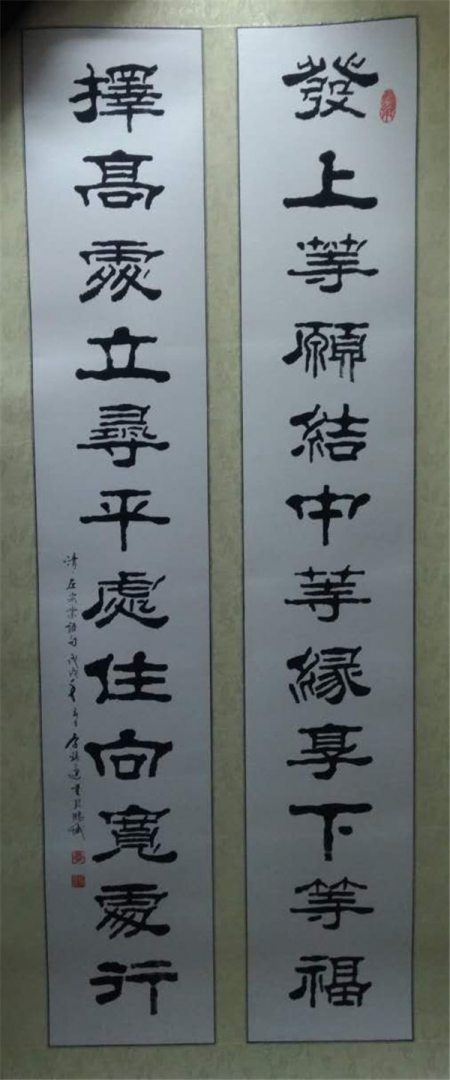 發上等願結中等緣享下等福
擇高處立尋平處住向寬處行
清左宗棠語句戊戌